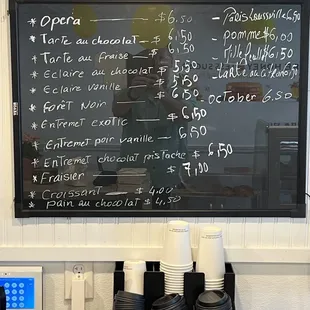 * Opera — $6.50
* Tarte au chocolat — $ 6.50
* Tarte au fraise — $ 6.50
* Eclaire au chocolat $ 5.50
* Eclaire vanille — $ 5.50
* Forêt Noir — $ 6.50
* Entremet exotic — $ 6.50
* Entremet poir vanille — 6.50
* Entremet chocolat pistache $ 6.50
* Fraisier — $ 7.00
* Croissant — $ 4.00
* Pain au chocolat $ 4.50
- Paris 6.50
- Pomme $6.00
6.50
- Tarte au
- october 6.50